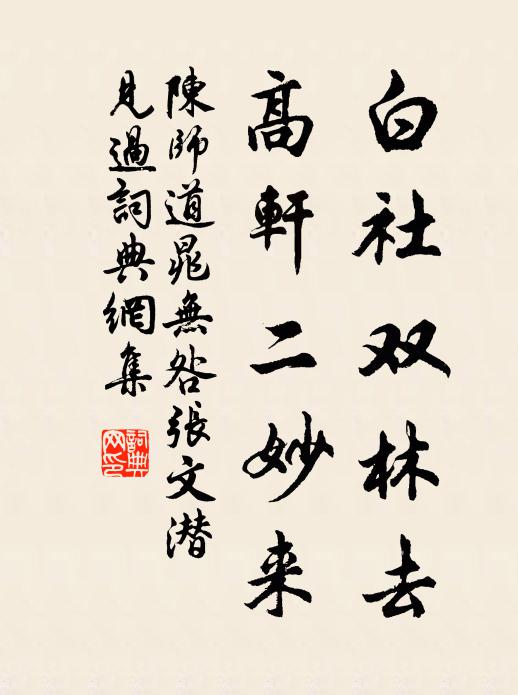 白社双林去
高軒二妙来
陳師道晁無咎張文潜
見過詞典網集
詞典
网印